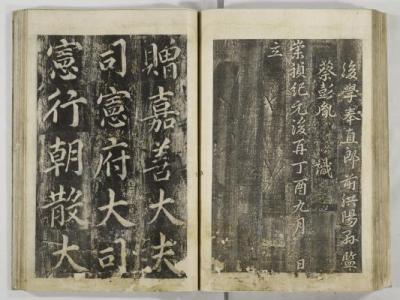 後學奉直郎前洪陽縣監
蔡彭胤 識
崇禎紀元後再丁酉九月 日
立
贈嘉善大夫
司憲府大司
憲行朝散大